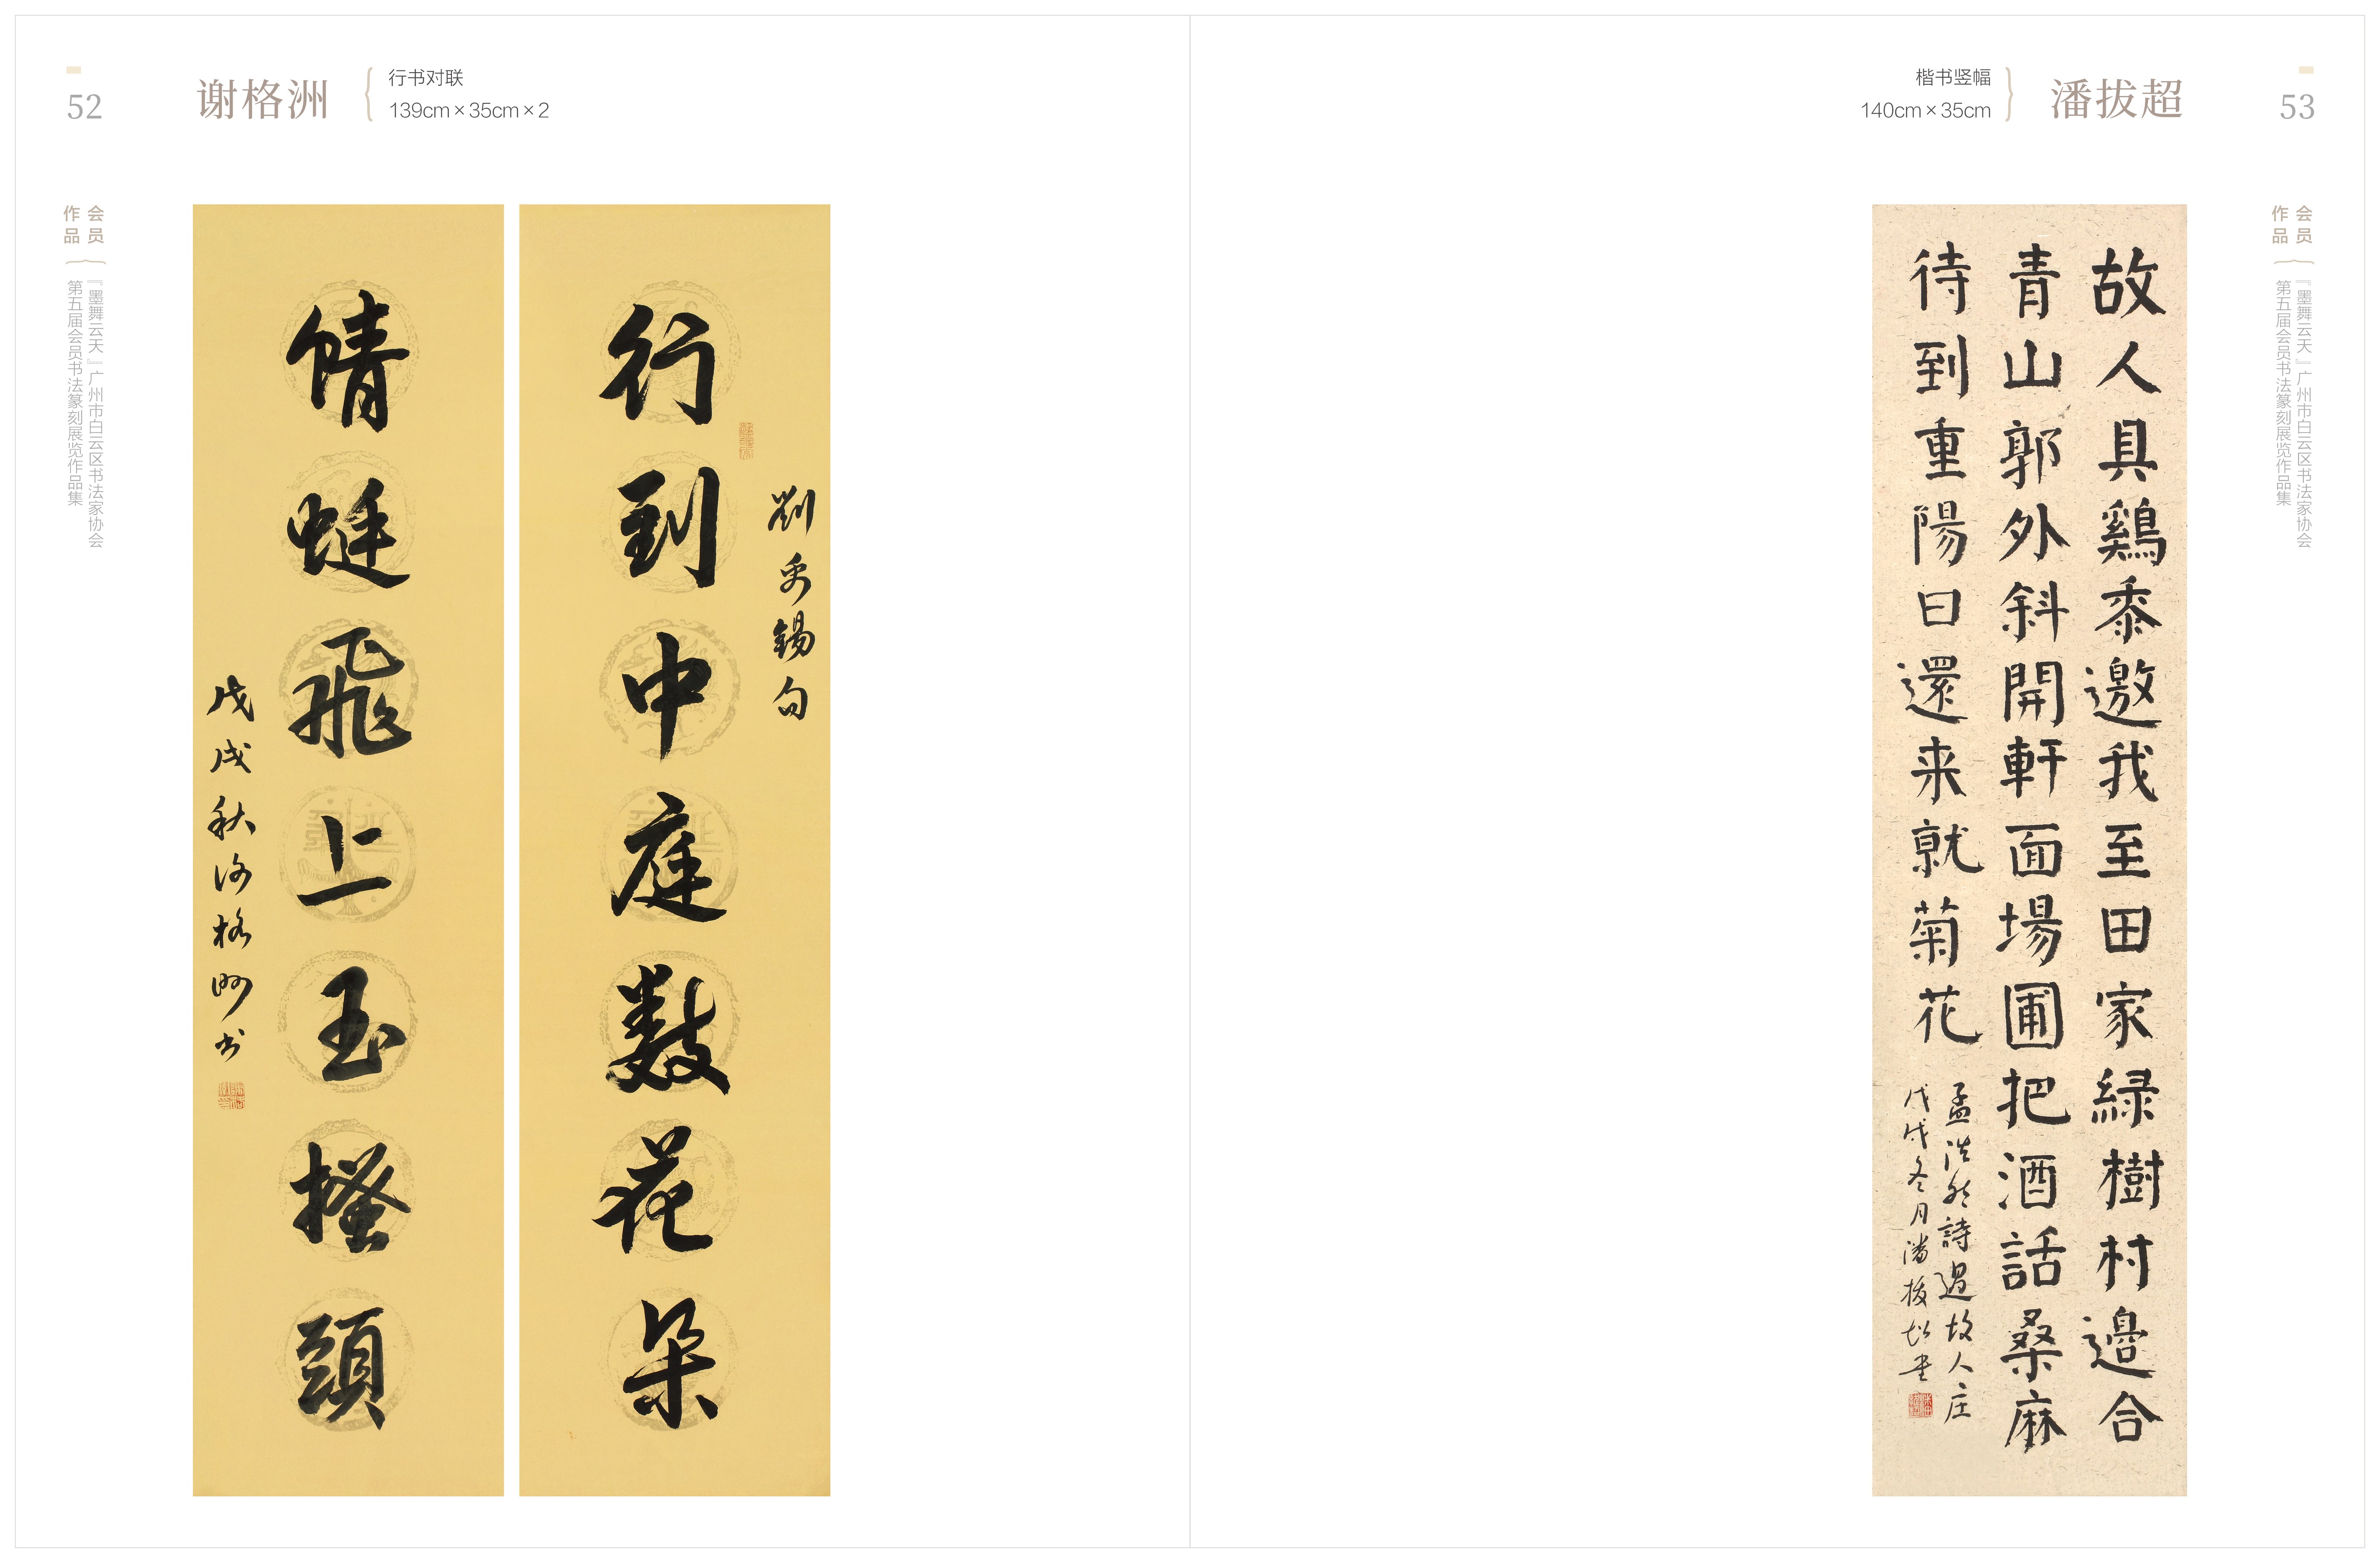 52
谢格洲
行书对联
139cm×35cm×2
会员
作品
『墨舞云天』广州市白云区书法家协会
第五届会员书法篆刻展览作品集
劉禹錫句
行到中庭數花朵
蜻蜓飛上玉搔頭
戊戌秋谢格洲书
楷书竖幅
140cm×35cm
潘拔超
53
会员
作品
『墨舞云天』广州市白云区书法家协会
第五届会员书法篆刻展览作品集
故人具鷄黍邀我至田家緑樹村邊合
青山郭外斜開軒面場圃把酒話桑麻
待到重陽日還来就菊花
孟浩然詩過故人庄
戊戌冬月潘拔超書